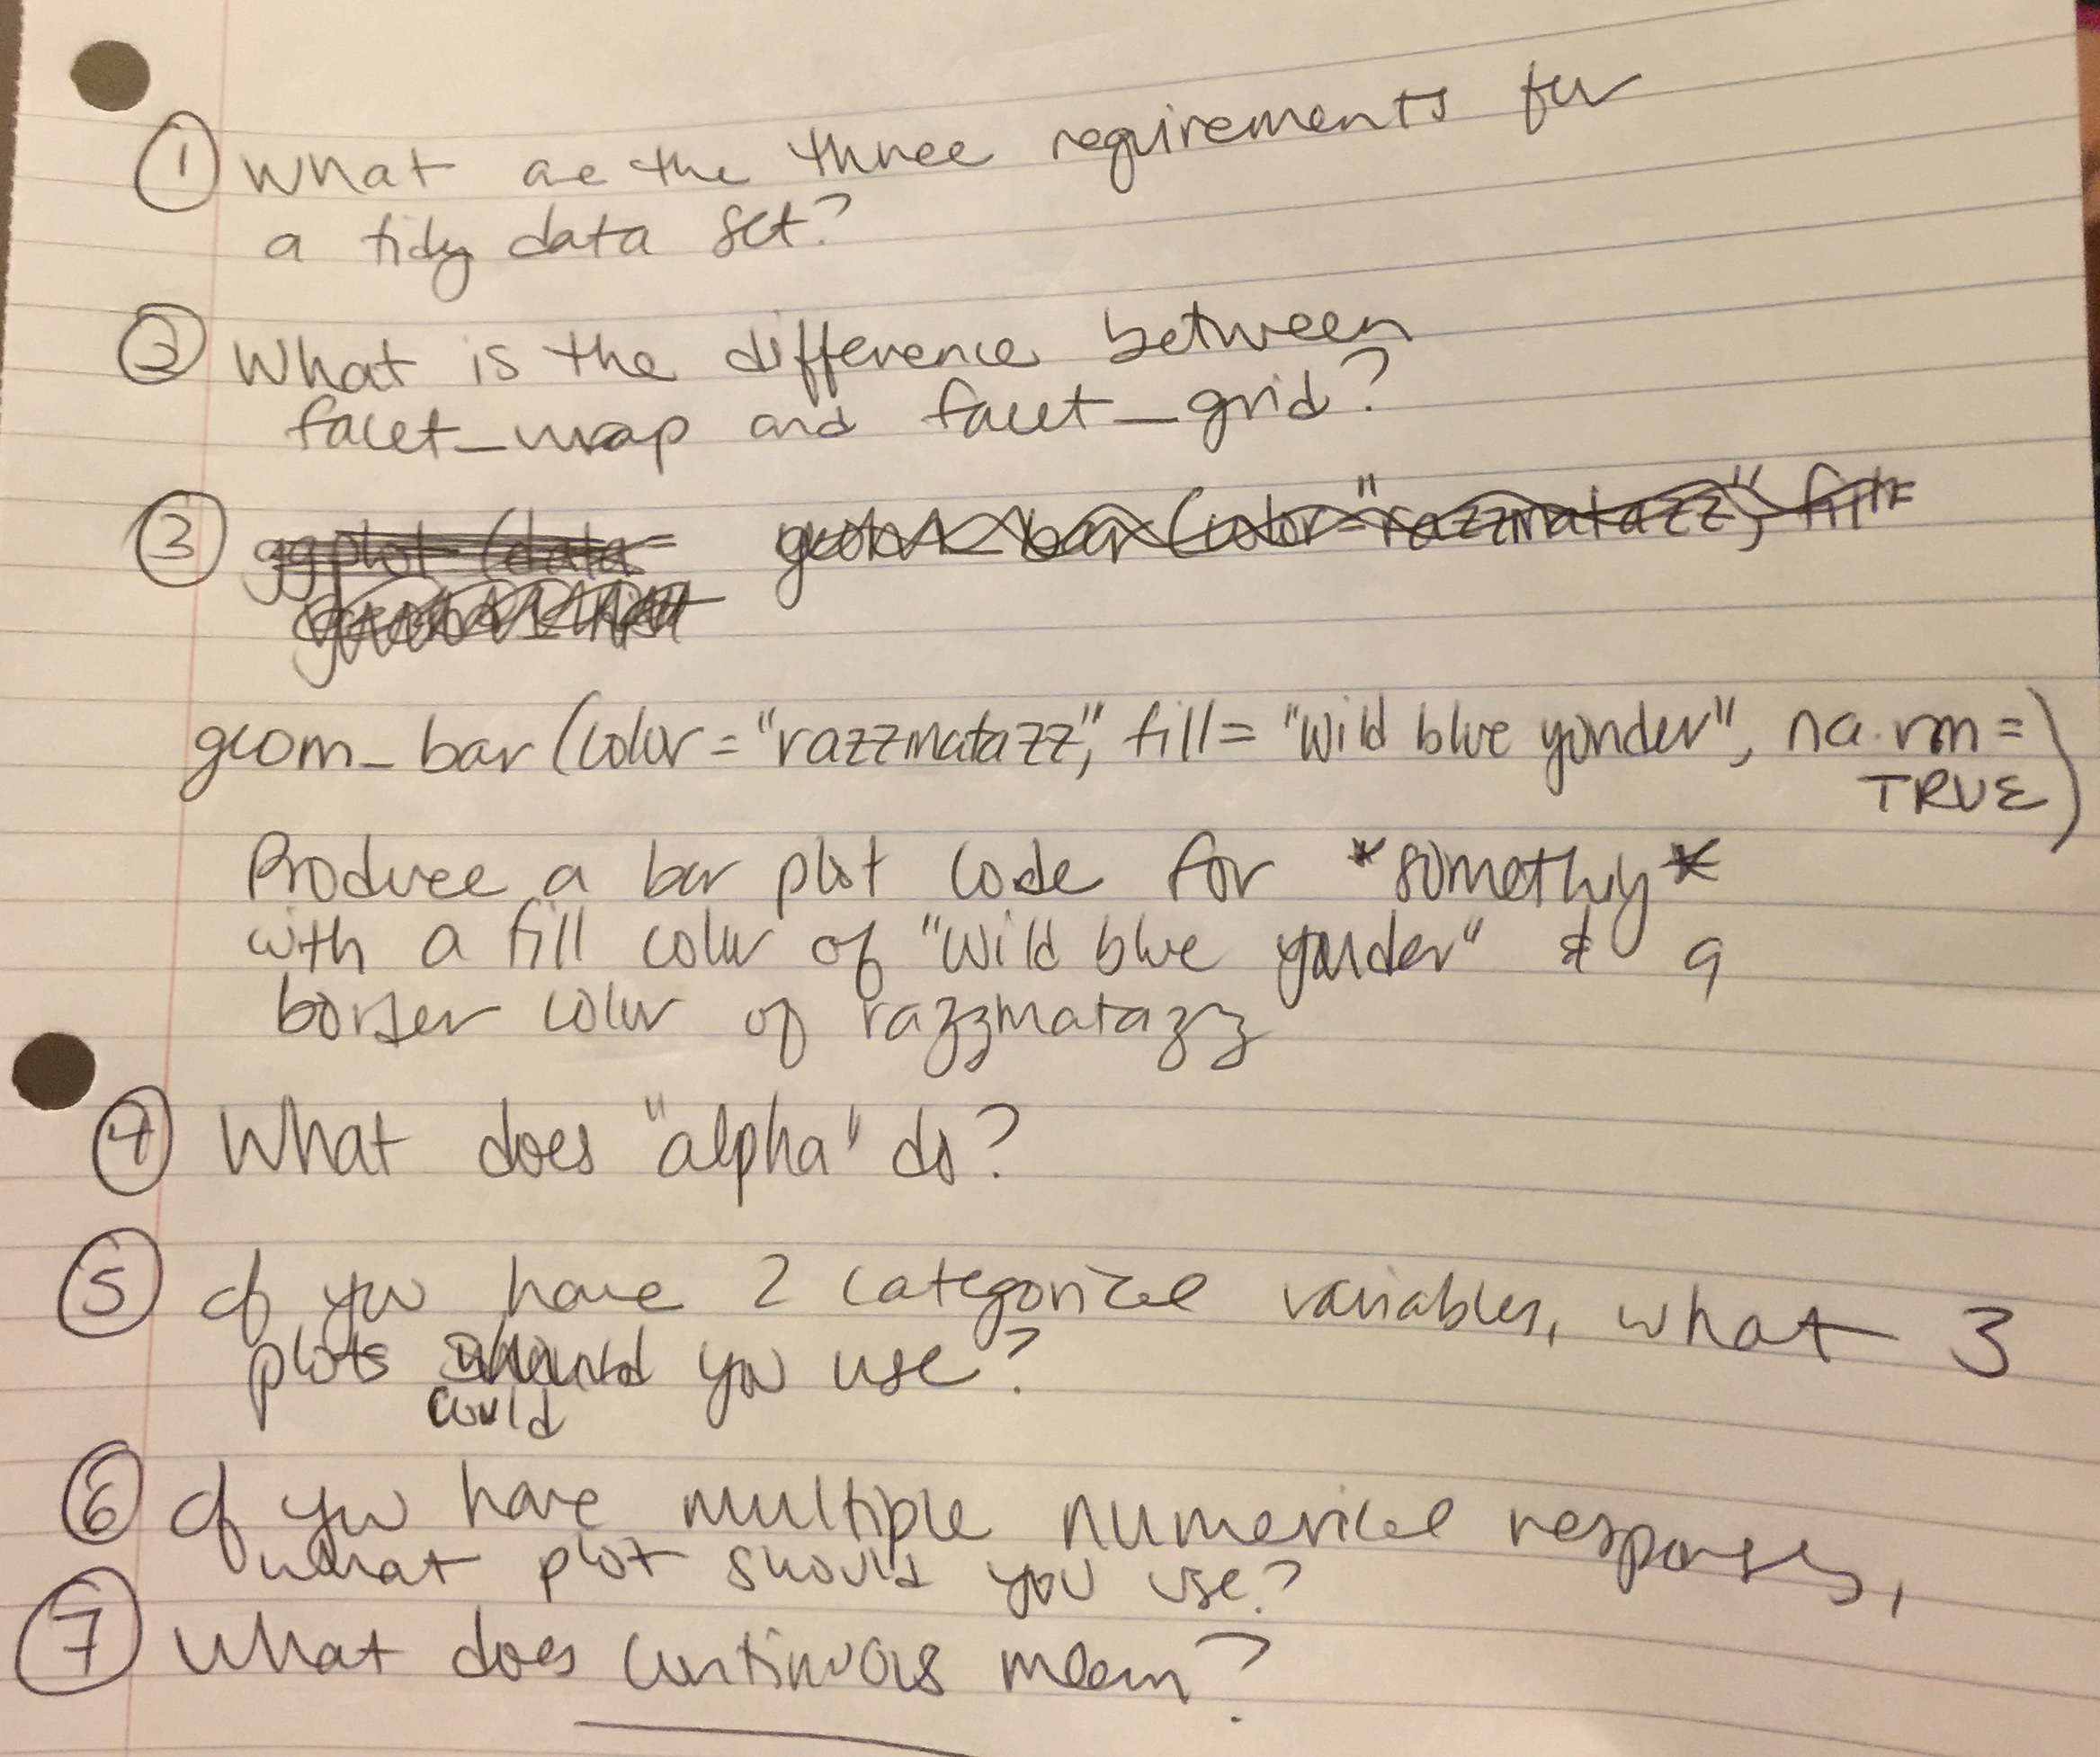 ① What are the three requirements for
a tidy data set?
② What is the difference between
facet_wrap and facet_grid?
③ ggplot (data= geom_bar (color="razzmatazz", fill=
geom_bar (color="razzmatazz", fill= "Wild blue yonder", na.rm =
TRUE)
Produce a bar plot code for *something*
with a fill color of "Wild blue yonder" & a
border color of razzmatazz
④ What does "alpha" do?
⑤ If you have 2 categorical variables, what 3
plots should you use?
could
⑥ If you have multiple numerical responses,
what plot should you use?
⑦ What does continuous mean?